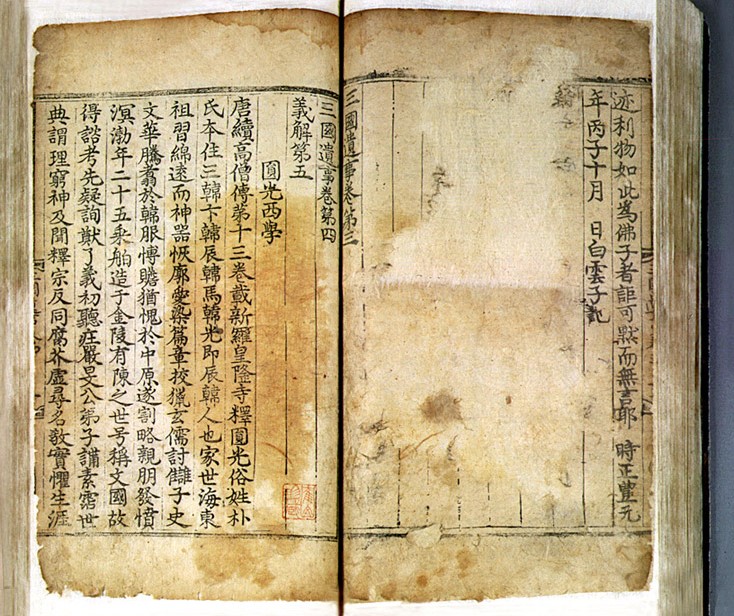 迹利物如此爲佛子者詎可默而無言耶 時正豊元
年丙子十月 日白雲子記
三國遺事卷第三
三國遺事卷第四
義解第五
圓光西學
唐續高僧傳第十三卷載新羅皇隆寺釋圓光俗姓朴
氏本住三韓卞韓辰韓馬韓光即辰韓人也家世海東
祖習綿遠而神器恢廓愛染篇章挍獵玄儒討讎子史
文華騰翥於韓服愽贍猶愧於中原遂割略親朋發憤
溟渤年二十五乘舶造于金陵有陳之世号稱文國故
得諮考先疑詢猷了義初聽庄嚴旻公弟子講素霑世
典謂理窮神及聞釋宗反同腐芥虛尋名敎實懼生涯